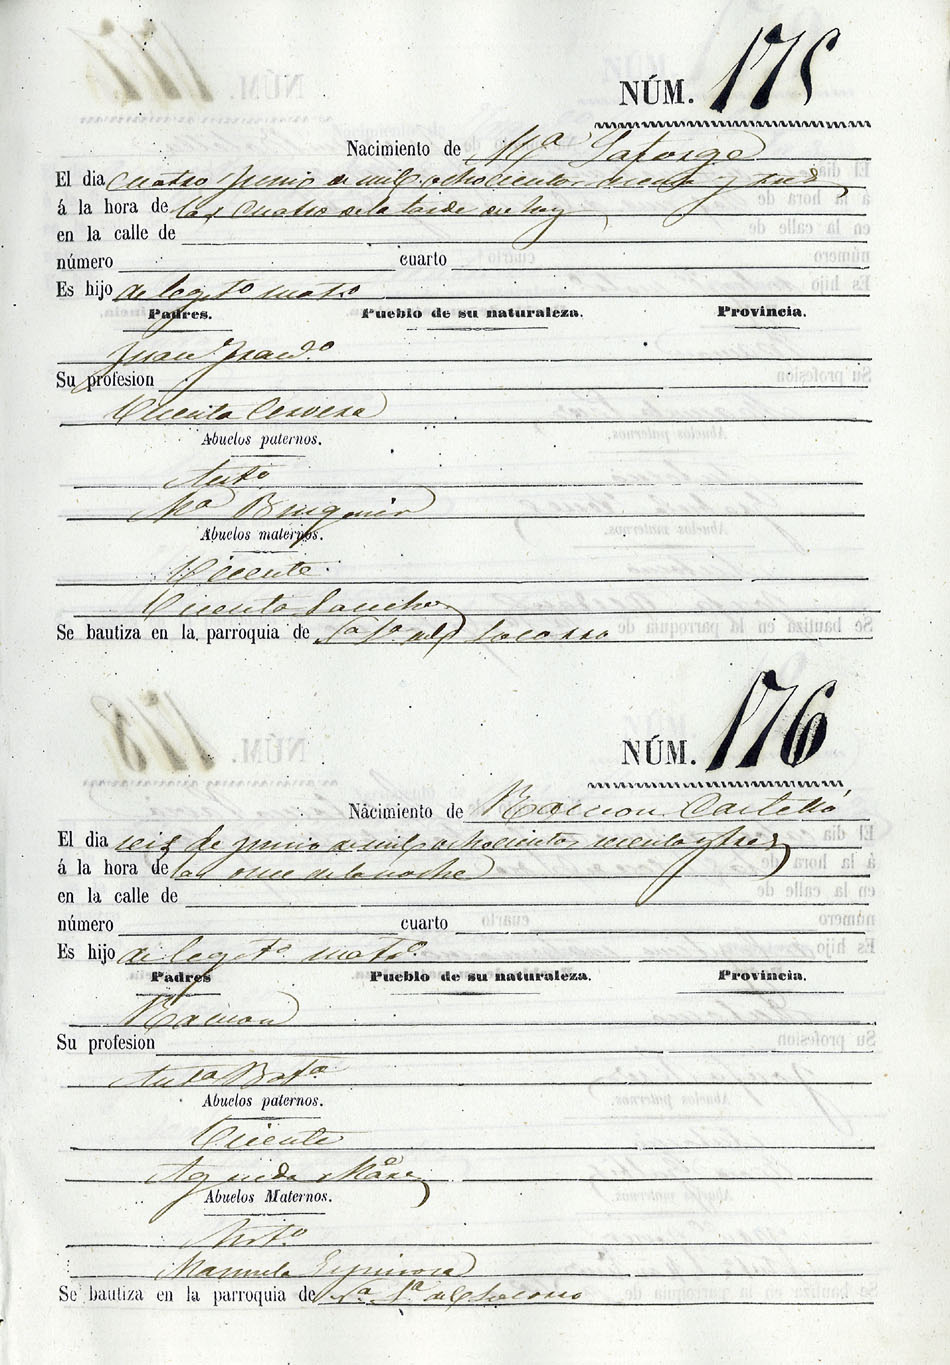 NÚM. 175
Nacimiento de Mª Laforga
El dia cuatro Junio de mil ochocientos y tres
á la hora de las cuatro de la tarde de hoy
en la calle de
número cuarto
Es hijo de legtº matº
Padres. Pueblo de su naturaleza. Provincia.
Juan
Su profesion
Vicenta Cervera
Abuelos paternos.
Antº
Mª
Abuelos maternos.
Vicente
Vicenta Sanchez
Se bautiza en la parroquia de Socorro
NÚM. 176
Nacimiento de Ramon Castelló
El dia seis de Junio de mil ochocientos y tres
á la hora de las once de la noche
en la calle de
número cuarto
Es hijo de legtº matº
Padres Pueblo de su naturaleza. Provincia.
Ramon
Su profesion
Antª
Abuelos paternos.
Vicente
Agueda
Abuelos Maternos.
Antº
Manuela Espinosa
Se bautiza en la parroquia de Socorro